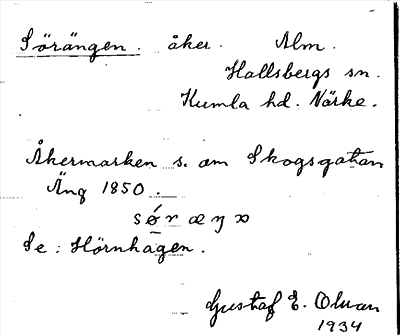 Sörängen. åker. Alm.
Hallsbergs sn.
Kumla hd. Närke.
Åkermarken s. om Skogsgatan
Äng 1850.
Se: Hörnhagen.
Gustaf E. Olvan
1934